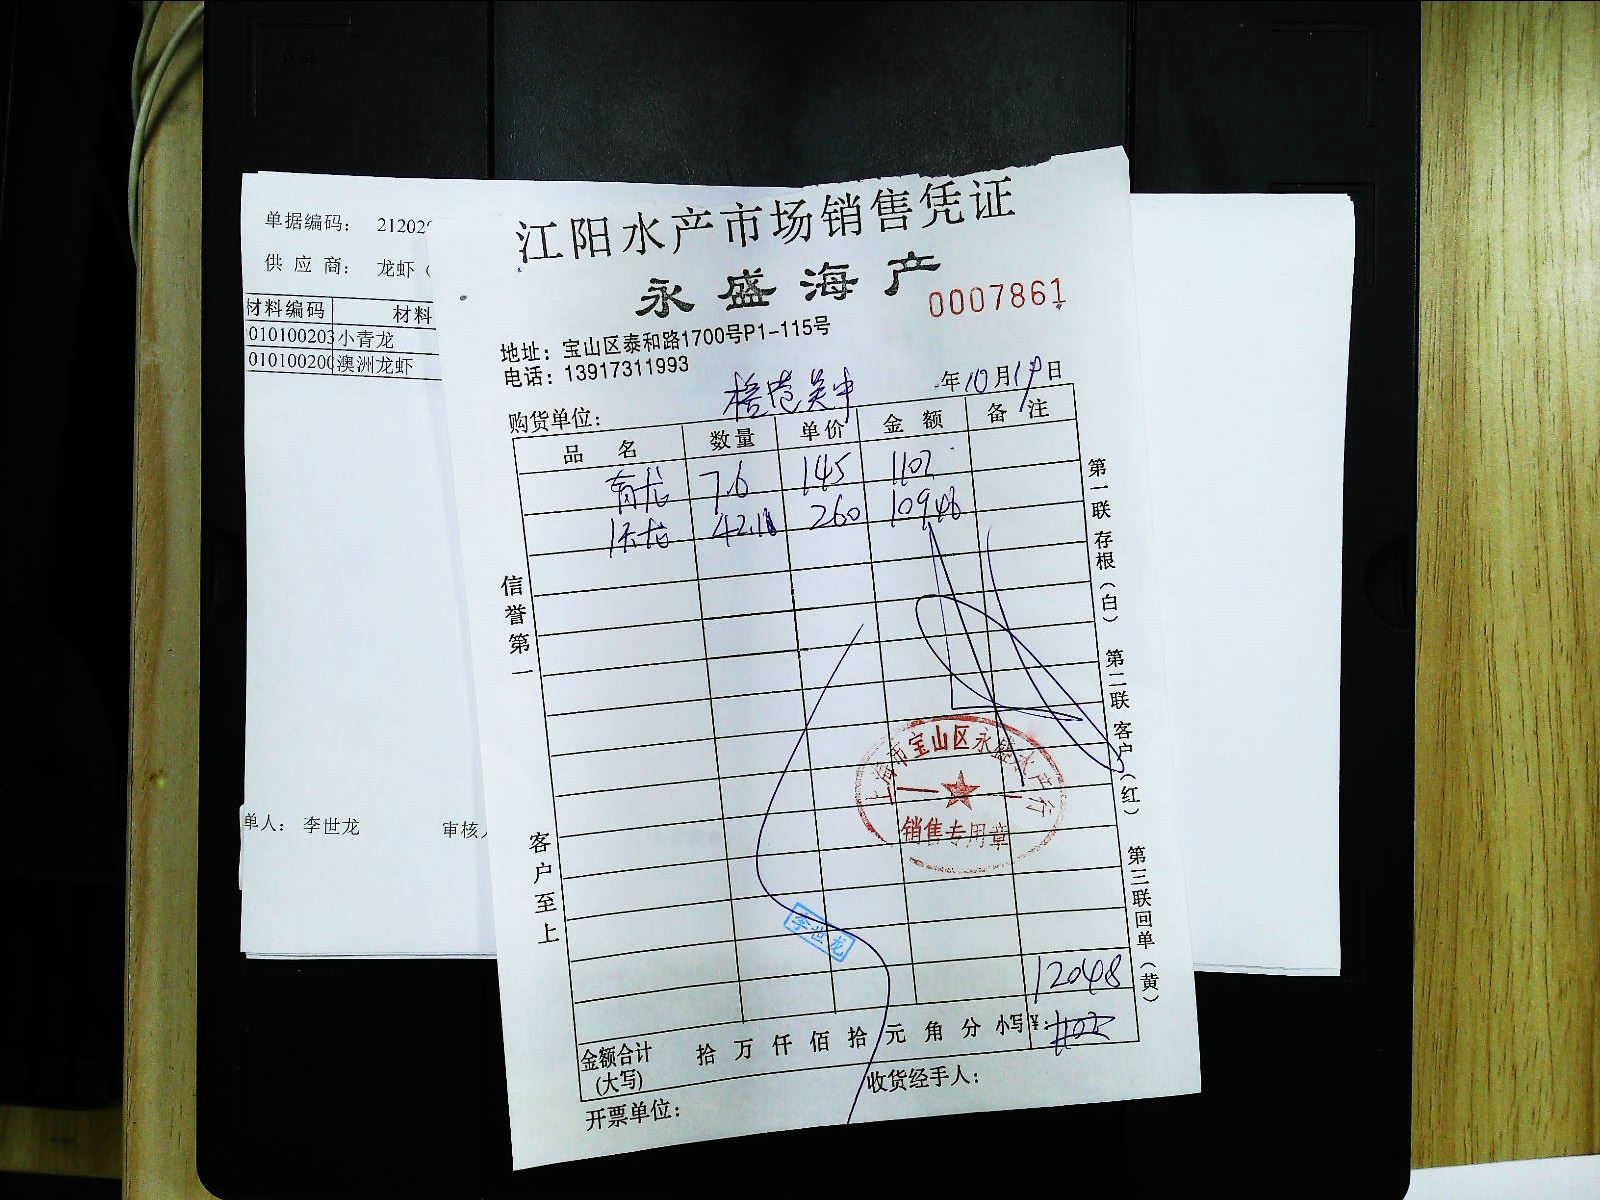 单据编码： 21202
供 应 商： 龙虾（
材料编码 材料
010100203 小青龙
01010020 澳洲龙虾
单人： 李世龙 审核
江阳水产市场销售凭证
永盛海产
0007861
地址：宝山区泰和路1700号P1-115号
电话：13917311993
年10月19日
购货单位：
品 名 数量 单价 金 额 备 注
青龙 7.6 145 1102
澳龙 42.1 260 10946
信誉第一
客户至上
第一联存根（白） 第二联客户（红） 第三联回单（黄）
上海市宝山区永盛水产行
销售专用章
李世龙
12048
金额合计(大写) 拾 万 仟 佰 拾 元 角 分 小写¥：
开票单位： 收货经手人：